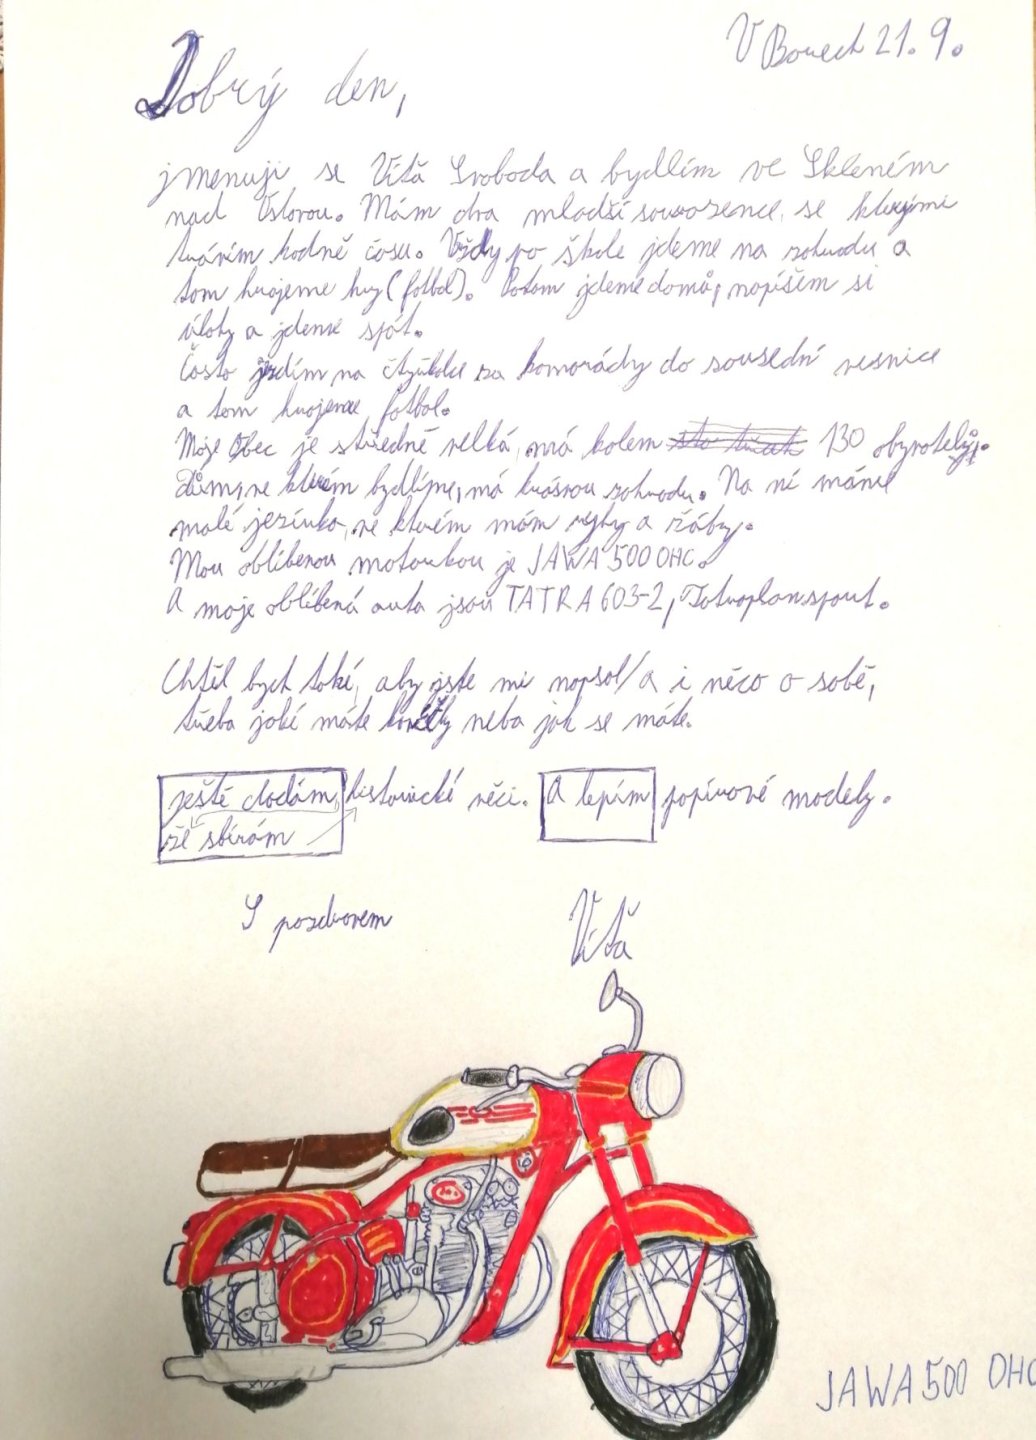 V Borech 21. 9.
Dobrý den,
jmenuji se Víťa Svoboda a bydlím ve Skleném
nad Oslavou. Mám dva mladší sourozence, se kterými
trávím hodně času. Vždy po škole jdeme na zahradu a
tam hrajeme hry (fotbal). Potom jdeme domů, napíšem si
úkoly a jdeme spát.
Často jezdím na čtyřkolce za kamarády do sousední vesnice
a tam hrajeme fotbal.
Moje obec je středně velká, má kolem 130 obyvatelů.
Dům, ve kterém bydlíme, má krásnou zahradu. Na ní máme
malé jezírko, ve kterém mám ryby a žáby.
Mou oblíbenou motorkou je JAWA 500 OHC.
A moje oblíbená auta jsou TATRA 603-2, Tatraplan sport.
Chtěl bych také, aby jste mi napsal/a i něco o sobě,
třeba jaké máte koníčky neba jak se máte.
ještě dodám, historické věci. A lepím papírové modely.
že sbírám
S pozdravem Víťa
JAWA 500 OHC